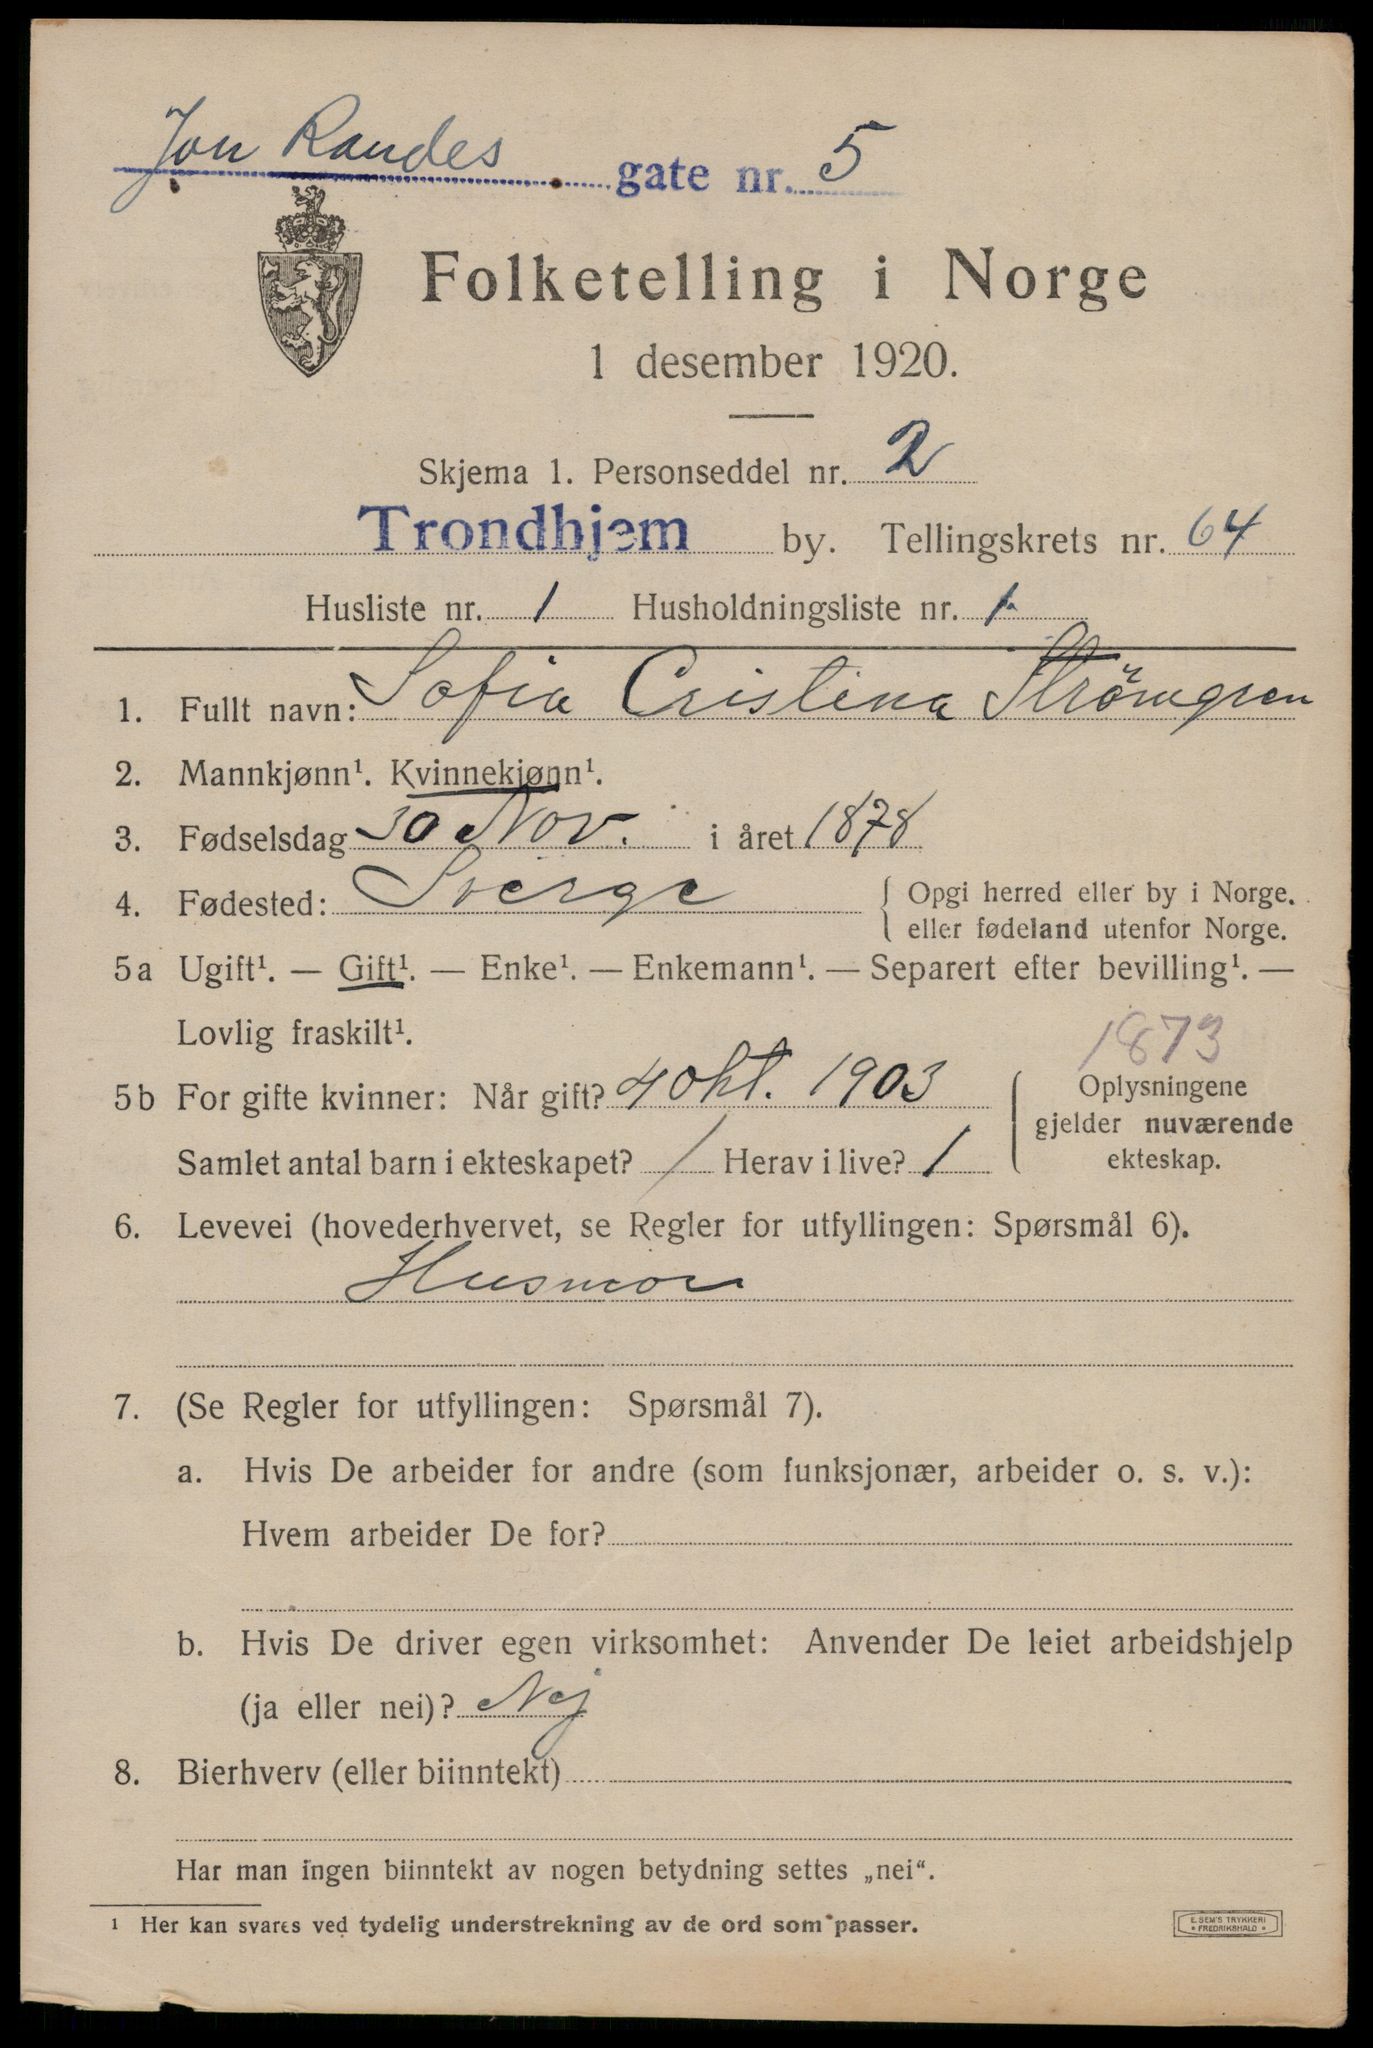 Jon Raudes gate nr. 5
Folketelling i Norge
1 desember 1920.
Skjema 1. Personseddel nr. 2
Trondhjem by. Tellingskrets nr. 64
Husliste nr. 1 Husholdningsliste nr. 1
1. Fullt navn: Sofia Cristina Strömgren
2. Mannkjønn¹. Kvinnekjønn¹.
3. Fødselsdag 30 Nov. i året 1878
4. Fødested: Sverge { Opgi herred eller by i Norge.
eller fødeland utenfor Norge.
5a Ugift¹. — Gift¹. — Enke¹. — Enkemann¹. — Separert efter bevilling¹. —
Lovlig fraskilt¹.
1873
5b For gifte kvinner: Når gift? 4 okt. 1903
Samlet antal barn i ekteskapet? 1 Herav i live? 1
Oplysningene
gjelder nuværende
ekteskap.
6. Levevei (hovederhvervet, se Regler for utfyllingen: Spørsmål 6).
Husmor
7. (Se Regler for utfyllingen: Spørsmål 7).
a. Hvis De arbeider for andre (som funksjonær, arbeider o. s. v.):
Hvem arbeider De for?
b. Hvis De driver egen virksomhet: Anvender De leiet arbeidshjelp
(ja eller nei)? Nej
8. Bierhverv (eller biinntekt)
Har man ingen biinntekt av nogen betydning settes „nei“.
¹ Her kan svares ved tydelig understrekning av de ord som passer.
E. SEM'S TRYKKERI
FREDRIKSHALD